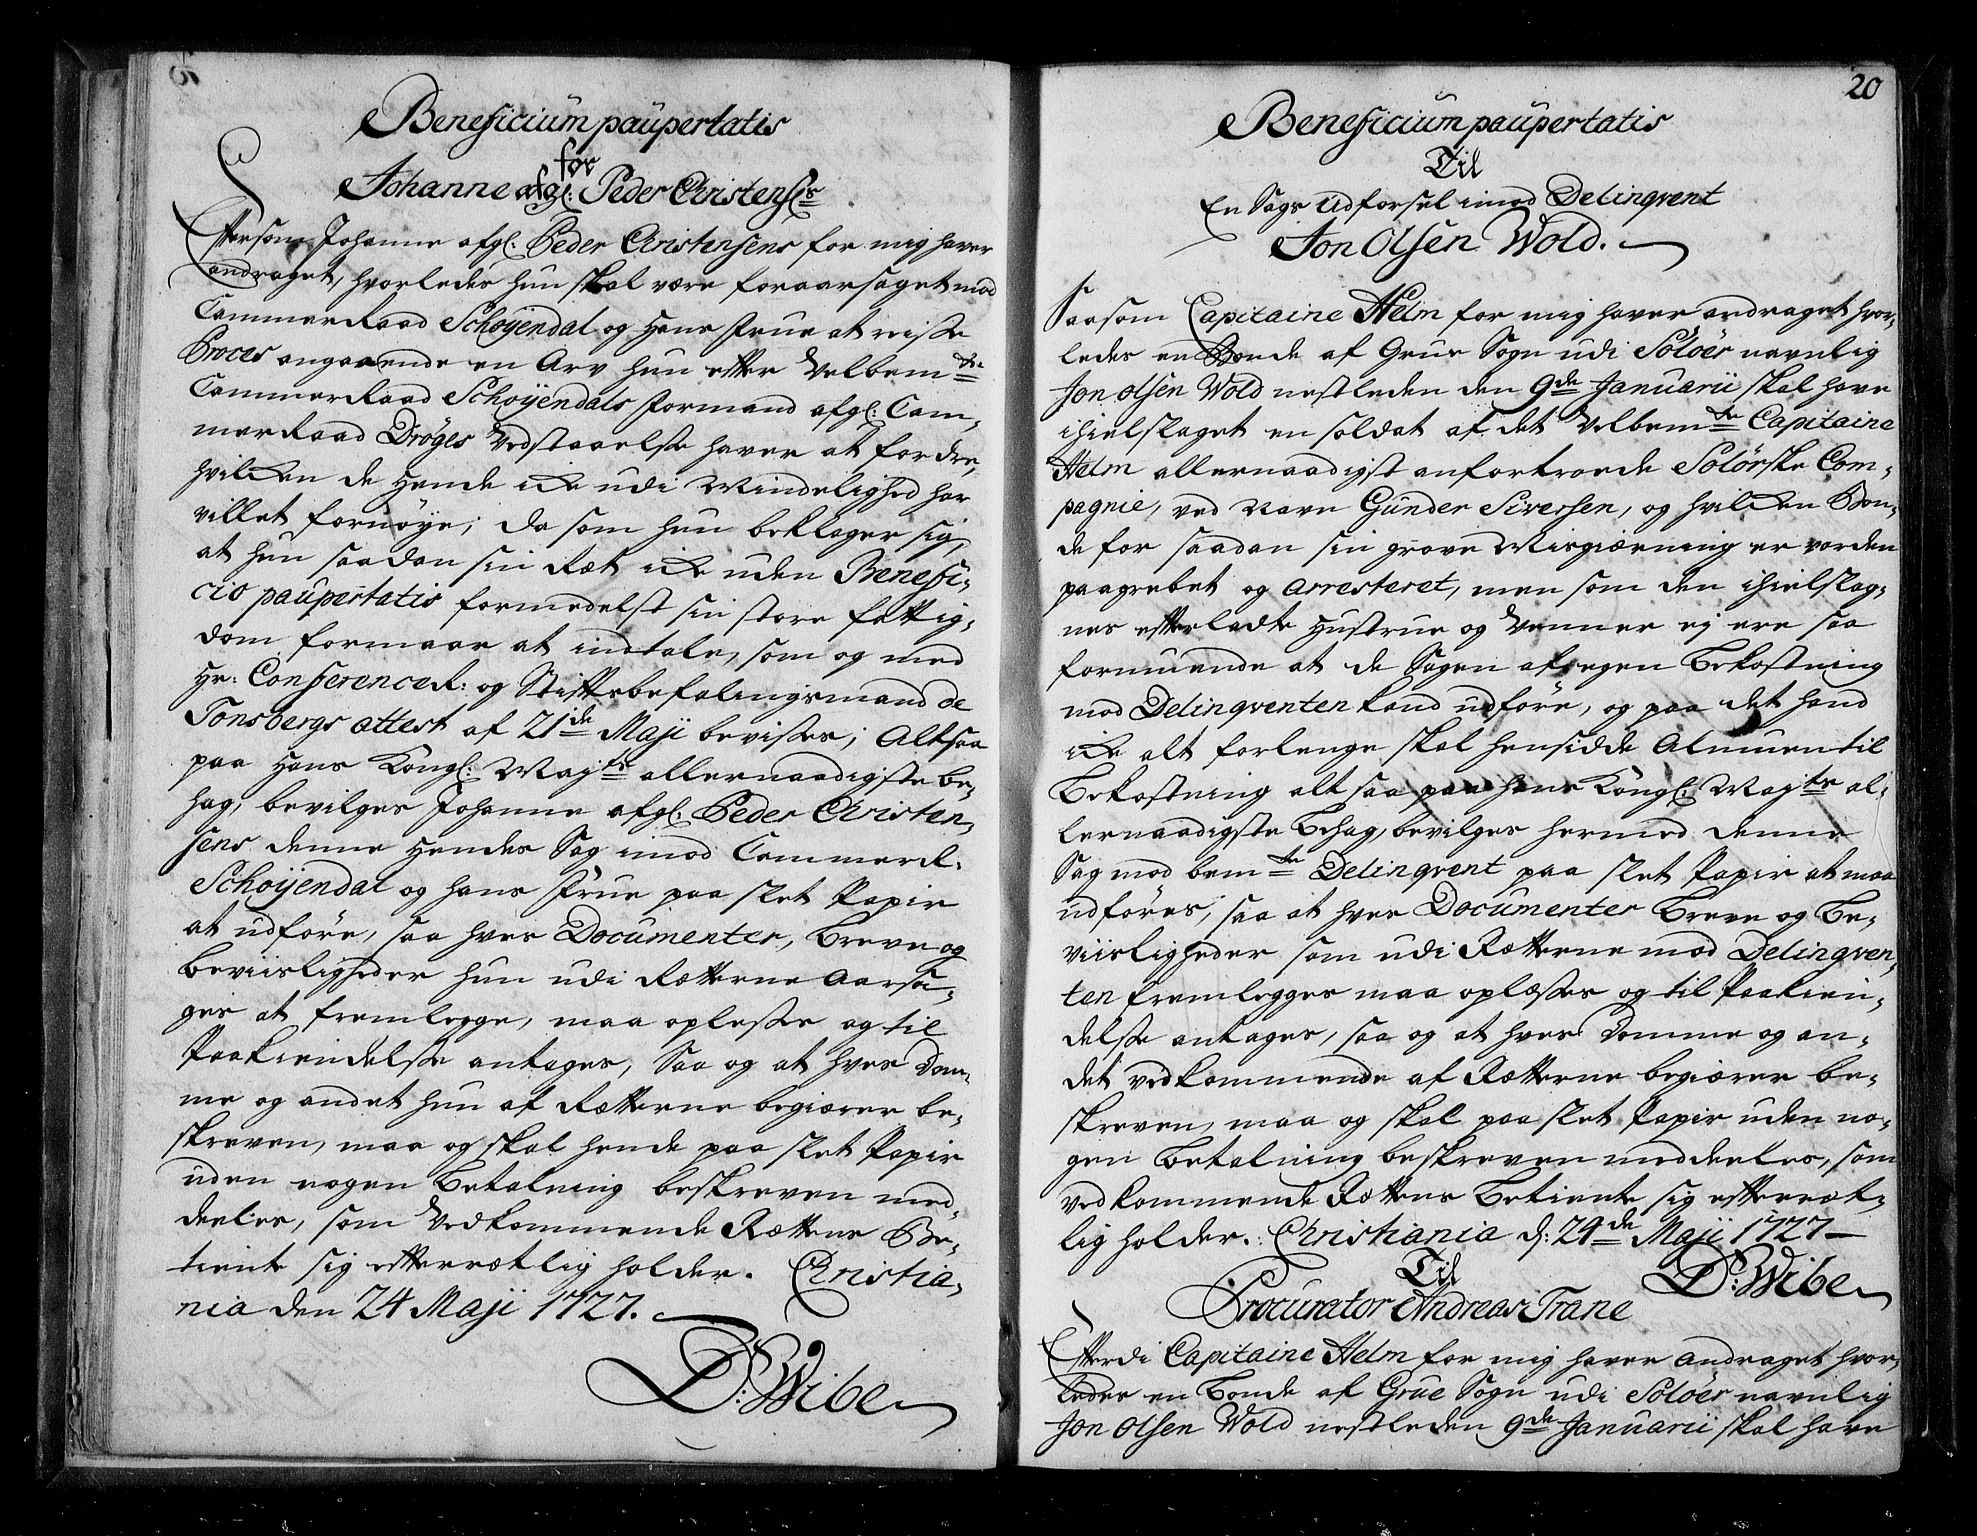 Beneficium paupertatis
for
Johanne afgl: Peder Christens:
Eftersom Johanne afgl: Peder Christensens for mig haver
andraget, hvorledes hun skal være foraarsaget mod
Cammerraad Schøyendal og Hans Frue at reisse
Proces angaaende en Arv hun efter Velbemte
Cammerraad Schøyendals Formand afgl: Cam-
merraad Drøges Vedstaaelse haver at fordre,
hvilken de Hende icke udi Mindelighed har
villet fornøye; da som hun beklager sig,
at hun saadan sin Ræt icke uden Benefi-
cio paupertatis formedelst sin store fattig-
dom formaar at indtale, som og med
Hr: Conferencer: og Stiftsbefalingsmand de
Tonsbergs attest af 21de Maji bevisses; Altsaa
paa Hans Kongl: Mayts allernaadigste be-
hag, bevilges Johanne afgl: Peder Christen-
sens denne Hendes Sag imod Cammerr:
Schøijendal og hans Frue paa slet Papir
at udføre, saa hves Documenter, breve og
beviisligheder hun udi Rætterne aarsa-
ges at fremlegge, maa oplesse og til
Paakiendelse antages, Saa og at hves Dom-
me og andet hun af Rætterne begiærer be-
skreven, maa og skal hende paa slet Papir
uden nogen betalning beskreven med-
deeles, som Vedkommende Rættens Be-
tiente sig efterrætlig holder. Christia-
nia den 24 Maji 1727.
D: Wibe
20
Beneficium paupertatis
Til
En Sags Udførsel imod Delinqvent
Jon Olsen Wold.
Saasom Capitaine Helm for mig haver andraget hvor-
ledes en Bonde af Grue Sogn udi Soløer navnlig
Jon Olsen Wold nestleden den 9de Januarii skal have
ihielslaget en soldat af det Velbemte Capitaine
Helm allernaadigst anfortroede Solørske Com-
pagnie, ved Navn Gunder Siversen, og hvilken Bon-
de for saadan sin grove Misgiærning er vorden
paagrebet og arresteret, men som den ihielslag-
nes efterladte Hustrue og Venner ej ere saa
formuende at de Sagen af egen bekostning
mod Delinqventen kand udføre, og paa det hand
icke alt forlenge skal hensidde Almuen til
bekostning altsaa paa hans Kongl: Mayts al-
lernaadigste behag, bevilges hermed denne
Sag mod bemte Delinqvent paa slet Papir at maa
udføres, saa at hves Documenter breve og be-
viisligheder som udi Rætterne mod Delinqven-
ten fremlegges maa oplæsses og til Paakien-
delse antages, saa og at hves Domme og an-
det vedkommende af Rætterne begiærer be-
skreven, maa og skal paa slet Papir uden no-
gen betalning beskreven meddeeles, som
vedkommende Rættens betiente sig efterræt-
lig holder. Christiania d: 24de Maji 1727
D: Wibe
Til
Procurator Andreas Trane
Efterdi Capitaine Helm for mig haver andraget hvor-
ledes en bonde af Grue Sogn udi Soløer navnlig
Jon Olsen Wold nestleden 9de Januarii skal have